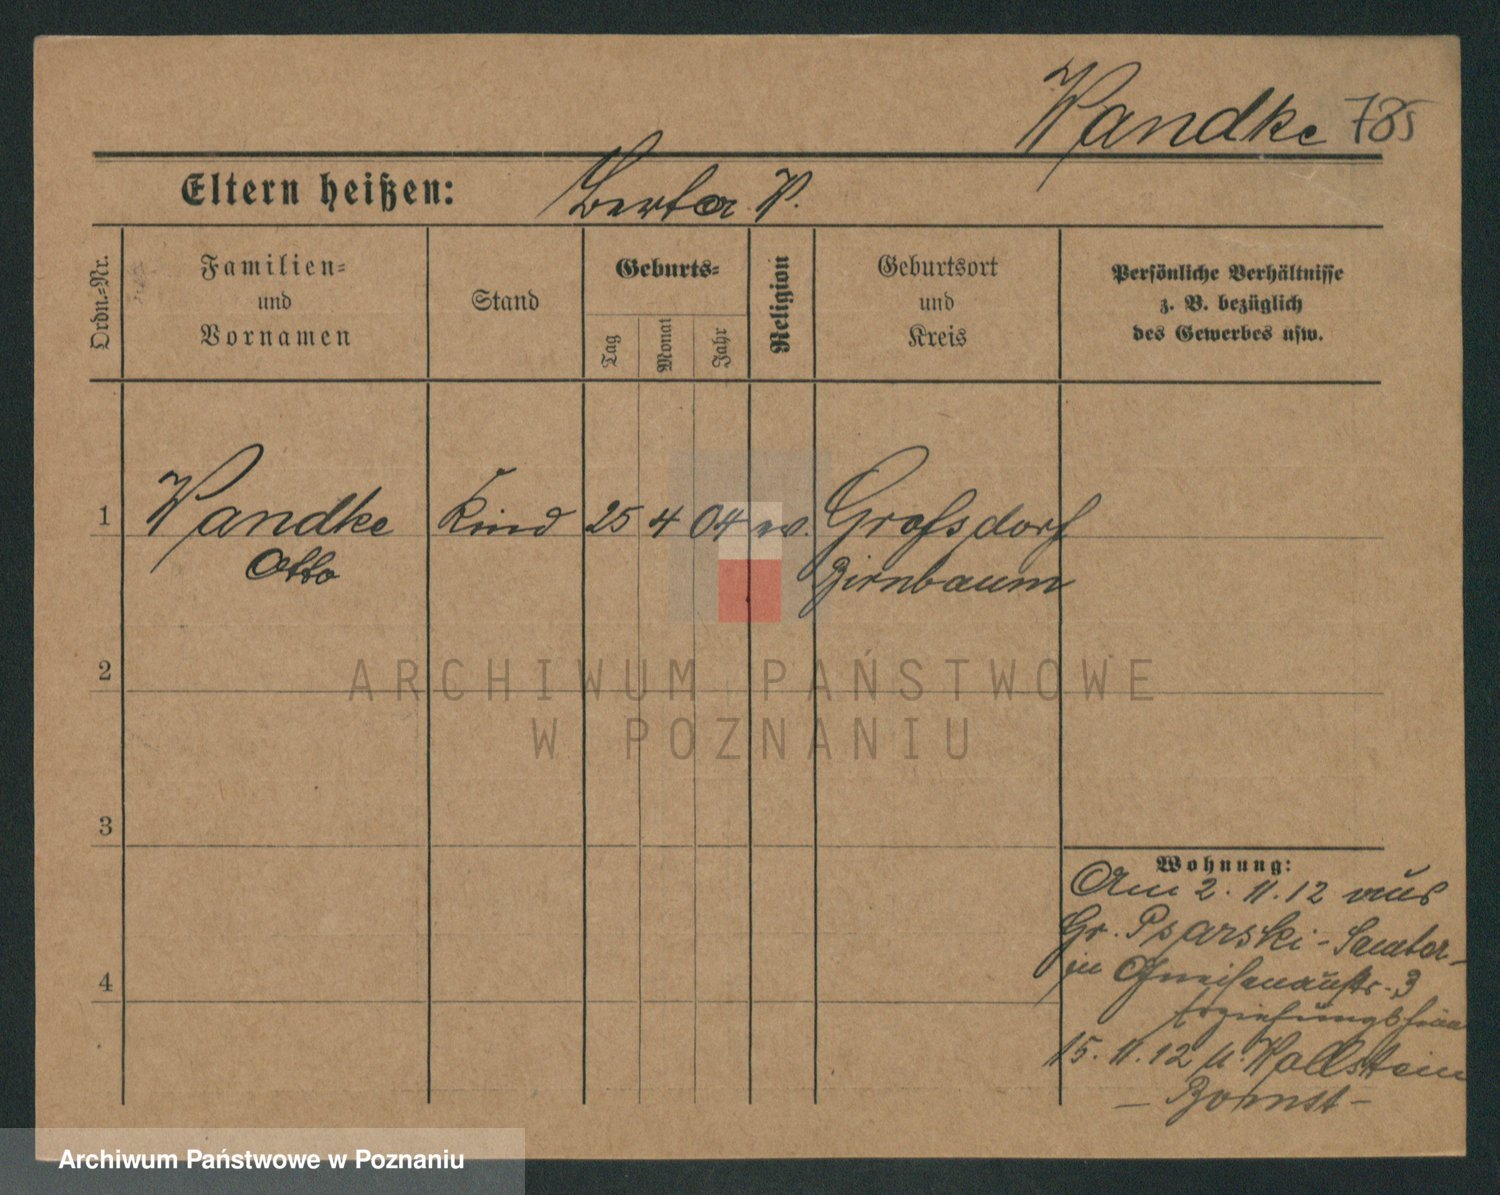 Wandke 785
Eltern heißen: Berta W.
Ordn.-Nr.
Familien-
und
Vornamen
Stand
Geburts-
Tag
Monat
Jahr
Religion
Geburtsort
und
Kreis
Persönliche Verhältnisse
z. B. bezüglich
des Gewerbes usw.
1 Wandke Kind 25 4 04 ev. Grofsdorf
Otto Birnbaum
2
3
4
Wohnung:
Am 2. 11. 12 aus
Gr. Psarski - Samter -
in Gneisenaustr. 3
Erziehungshaus
15. 11. 12 n. Wollstein
- Bomst -
ARCHIWUM PAŃSTWOWE
W POZNANIU
Archiwum Państwowe w Poznaniu